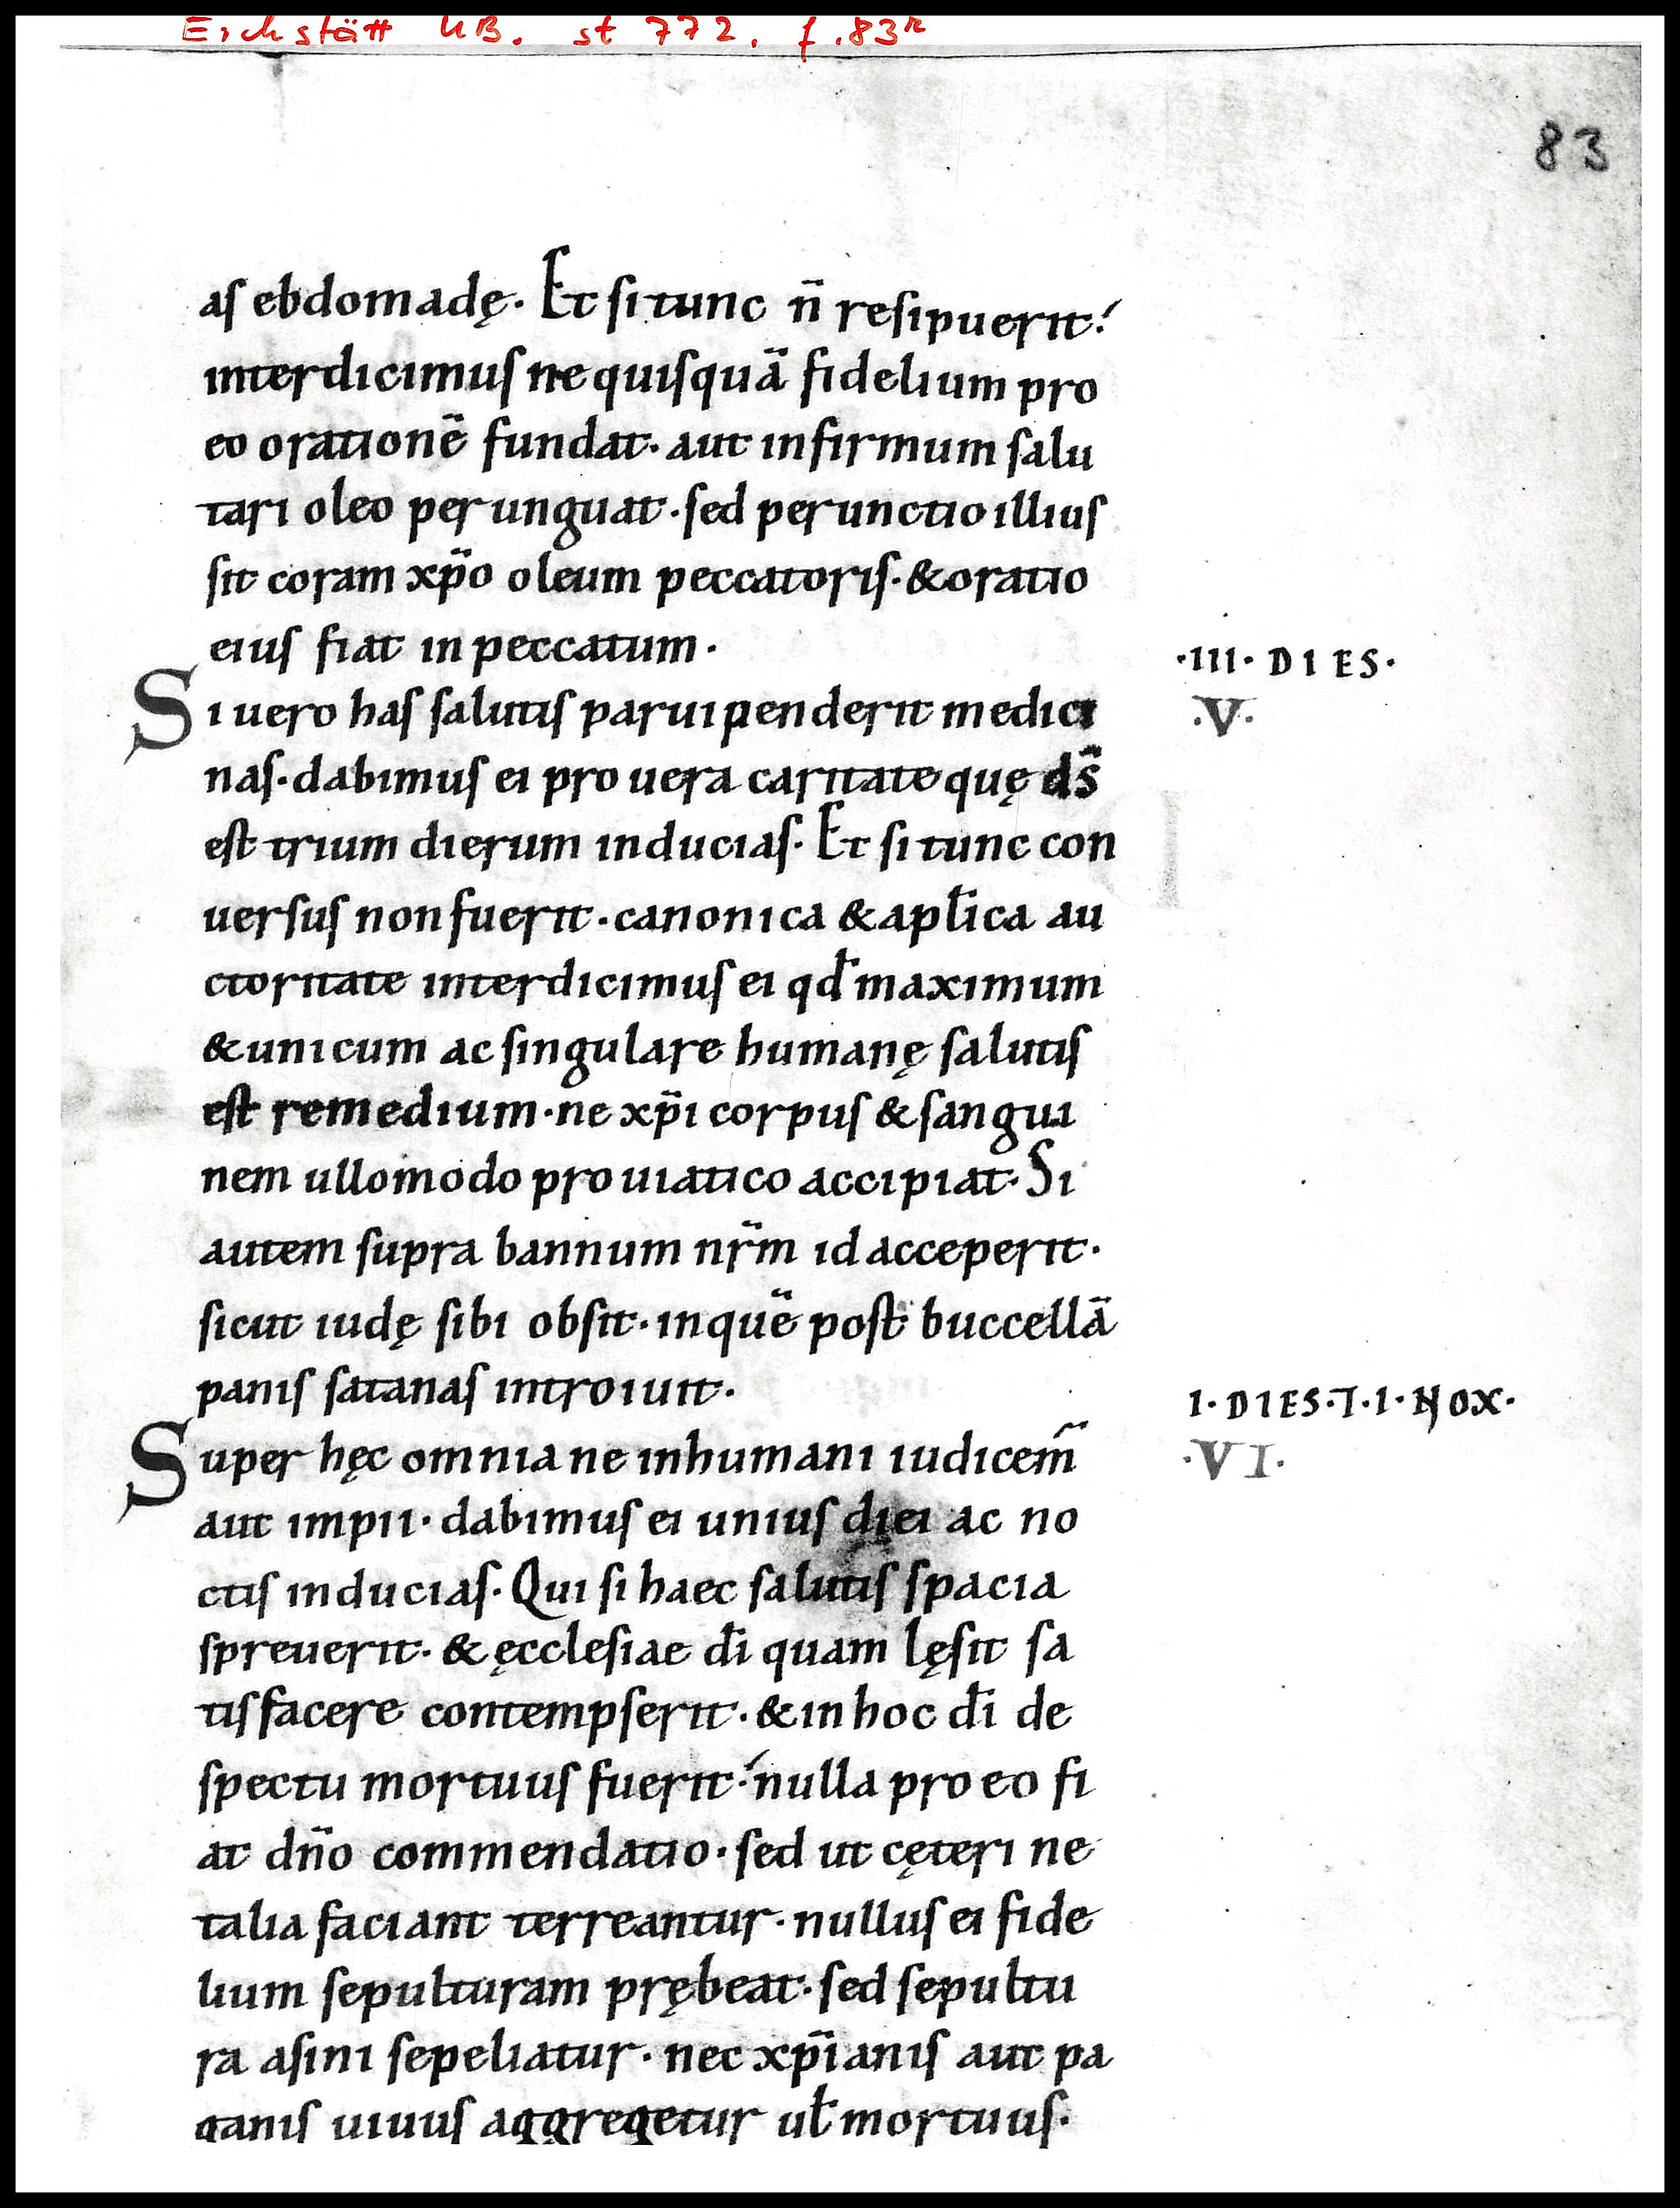 Eichstätt UB. st 772. f. 83r
83
aſ ebdomadę. Et ſi tunc n̄ reſipuerit.
interdicimuſ ne quiſquā fidelium pro
eo orationē fundat. aut infirmum ſalu
tari oleo perunguat. ſed perunctio illiuſ
ſit coram xp̄o oleum peccatoriſ. & oratio
eiuſ fiat in peccatum.
.III. DIES.
Si uero haſ ſalutiſ paruipenderit medici
.V.
naſ. dabimuſ ei pro uera caritate quę ds̄
eſt trium dierum induciaſ. Et ſi tunc con
uerſuſ non fuerit. canonica & apl̄ica au
ctoritate interdicimuſ ei qd̄ maximum
& unicum ac ſingulare humanę ſalutiſ
eſt remedium. ne xp̄i corpuſ & ſangui
nem ullomodo pro uiatico accipiat. Si
autem ſupra bannum nr̄m id acceperit.
ſicut iudę ſibi obſit. in quē poſt buccellā
paniſ ſatanaſ introiuit.
I. DIES. ⁊. I. NOX.
Super hęc omnia ne inhumani iudicem̄
.VI.
aut impii. dabimuſ ei uniuſ diei ac no
ctiſ induciaſ. Qui ſi haec ſalutiſ ſpacia
ſpreuerit. & ęccleſiae dī quam lęſit ſa
tiſfacere contempſerit. & in hoc dī de
ſpectu mortuuſ fuerit. nulla pro eo fi
at dn̄o commendatio. ſed ut cęteri ne
talia faciant terreantur. nulluſ ei fide
lium ſepulturam prębeat. ſed ſepultu
ra aſini ſepeliatur. nec xp̄ianiſ aut pa
ganiſ uiuuſ aggregetur ul̄ mortuuſ.